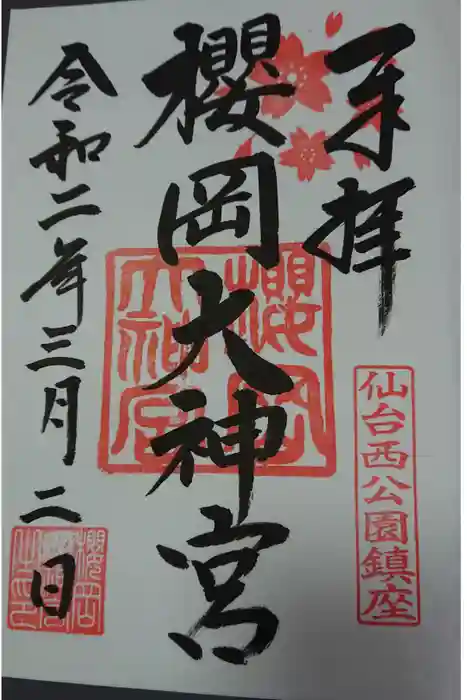 奉拝
仙台西公園鎮座
櫻岡大神宮
櫻岡大神宮
令和二年三月二日